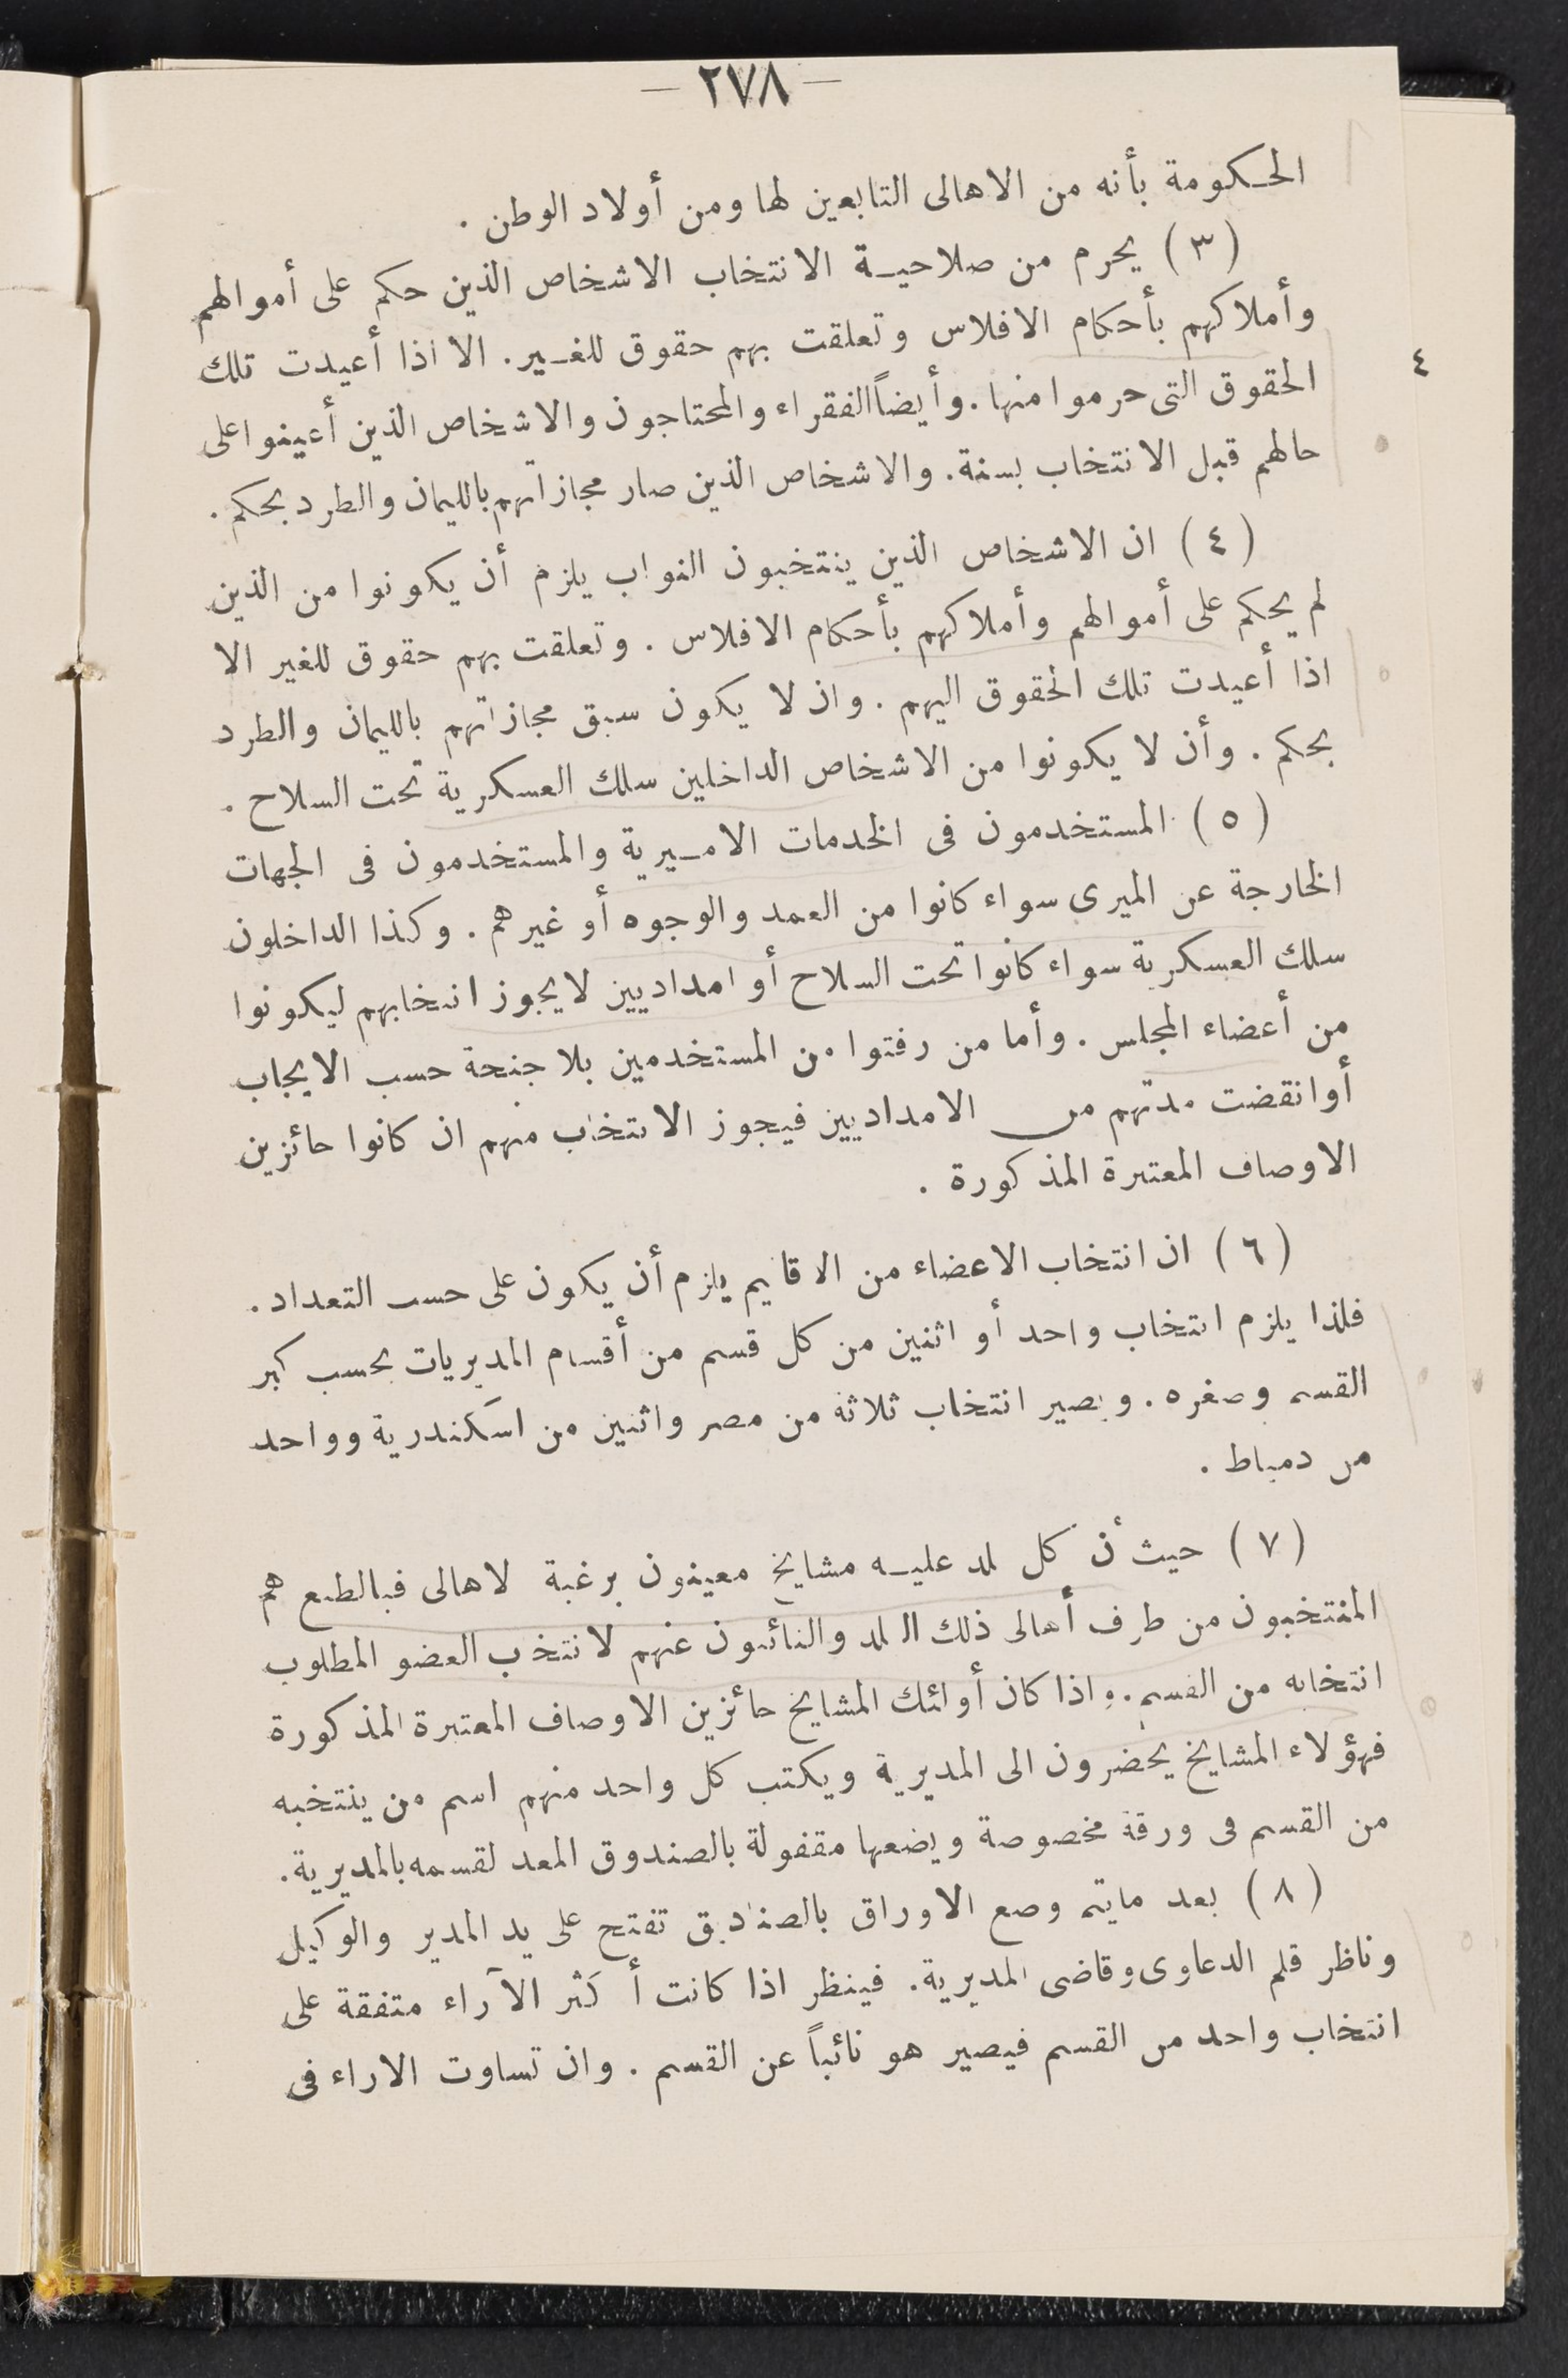 — ٢٧٨ —
الحكومة بأنه من الاهالى التابعين لها ومن أولاد الوطن .
(٣) يحرم من صلاحية الانتخاب الاشخاص الذين حكم على أموالهم
وأملاكهم بأحكام الافلاس وتعلقت بهم حقوق للغير . الا اذا أعيدت تلك
الحقوق التى حرموا منها . وأيضاً الفقراء والمحتاجون والاشخاص الذين أعينوا على
حالهم قبل الانتخاب بسنة . والاشخاص الذين صار مجازاتهم بالليمان والطرد بحكم .
(٤) ان الاشخاص الذين ينتخبون النواب يلزم أن يكونوا من الذين
لم يحكم على أموالهم وأملاكهم بأحكام الافلاس . وتعلقت بهم حقوق للغير الا
اذا أعيدت تلك الحقوق اليهم . وان لا يكون سبق مجازاتهم بالليمان والطرد
بحكم . وأن لا يكونوا من الاشخاص الداخلين سلك العسكرية تحت السلاح .
(٥) المستخدمون فى الخدمات الاميرية والمستخدمون فى الجهات
الخارجة عن الميرى سواء كانوا من العمد والوجوه أو غيرهم . وكذا الداخلون
سلك العسكرية سواء كانوا تحت السلاح أو امداديين لا يجوز انتخابهم ليكونوا
من أعضاء المجلس . وأما من رفتوا من المستخدمين بلا جنحة حسب الايجاب
أو انقضت مدتهم من الامداديين فيجوز الانتخاب منهم ان كانوا حائزين
الاوصاف المعتبرة المذكورة .
(٦) ان انتخاب الاعضاء من الاقاليم يلزم أن يكون على حسب التعداد .
فلذا يلزم انتخاب واحد أو اثنين من كل قسم من أقسام المديريات بحسب كبر
القسم وصغره . ويصير انتخاب ثلاثة من مصر واثنين من اسكندرية وواحد
من دمياط .
(٧) حيث أن كل بلد عليه مشايخ معينون برغبة الاهالى فبالطبع هم
المنتخبون من طرف أهالى ذلك البلد والنائبون عنهم لانتخاب العضو المطلوب
انتخابه من القسم . واذا كان أولئك المشايخ حائزين الاوصاف المعتبرة المذكورة
فهؤلاء المشايخ يحضرون الى المديرية ويكتب كل واحد منهم اسم من ينتخبه
من القسم فى ورقة مخصوصة ويضعها مقفولة بالصندوق المعد لقسمه بالمديرية .
(٨) بعد مايتم وضع الاوراق بالصناديق تفتح على يد المدير والوكيل
وناظر قلم الدعاوى وقاضى المديرية . فينظر اذا كانت أكثر الآراء متفقة على
انتخاب واحد من القسم فيصير هو نائباً عن القسم . وان تساوت الاراء فى
٤